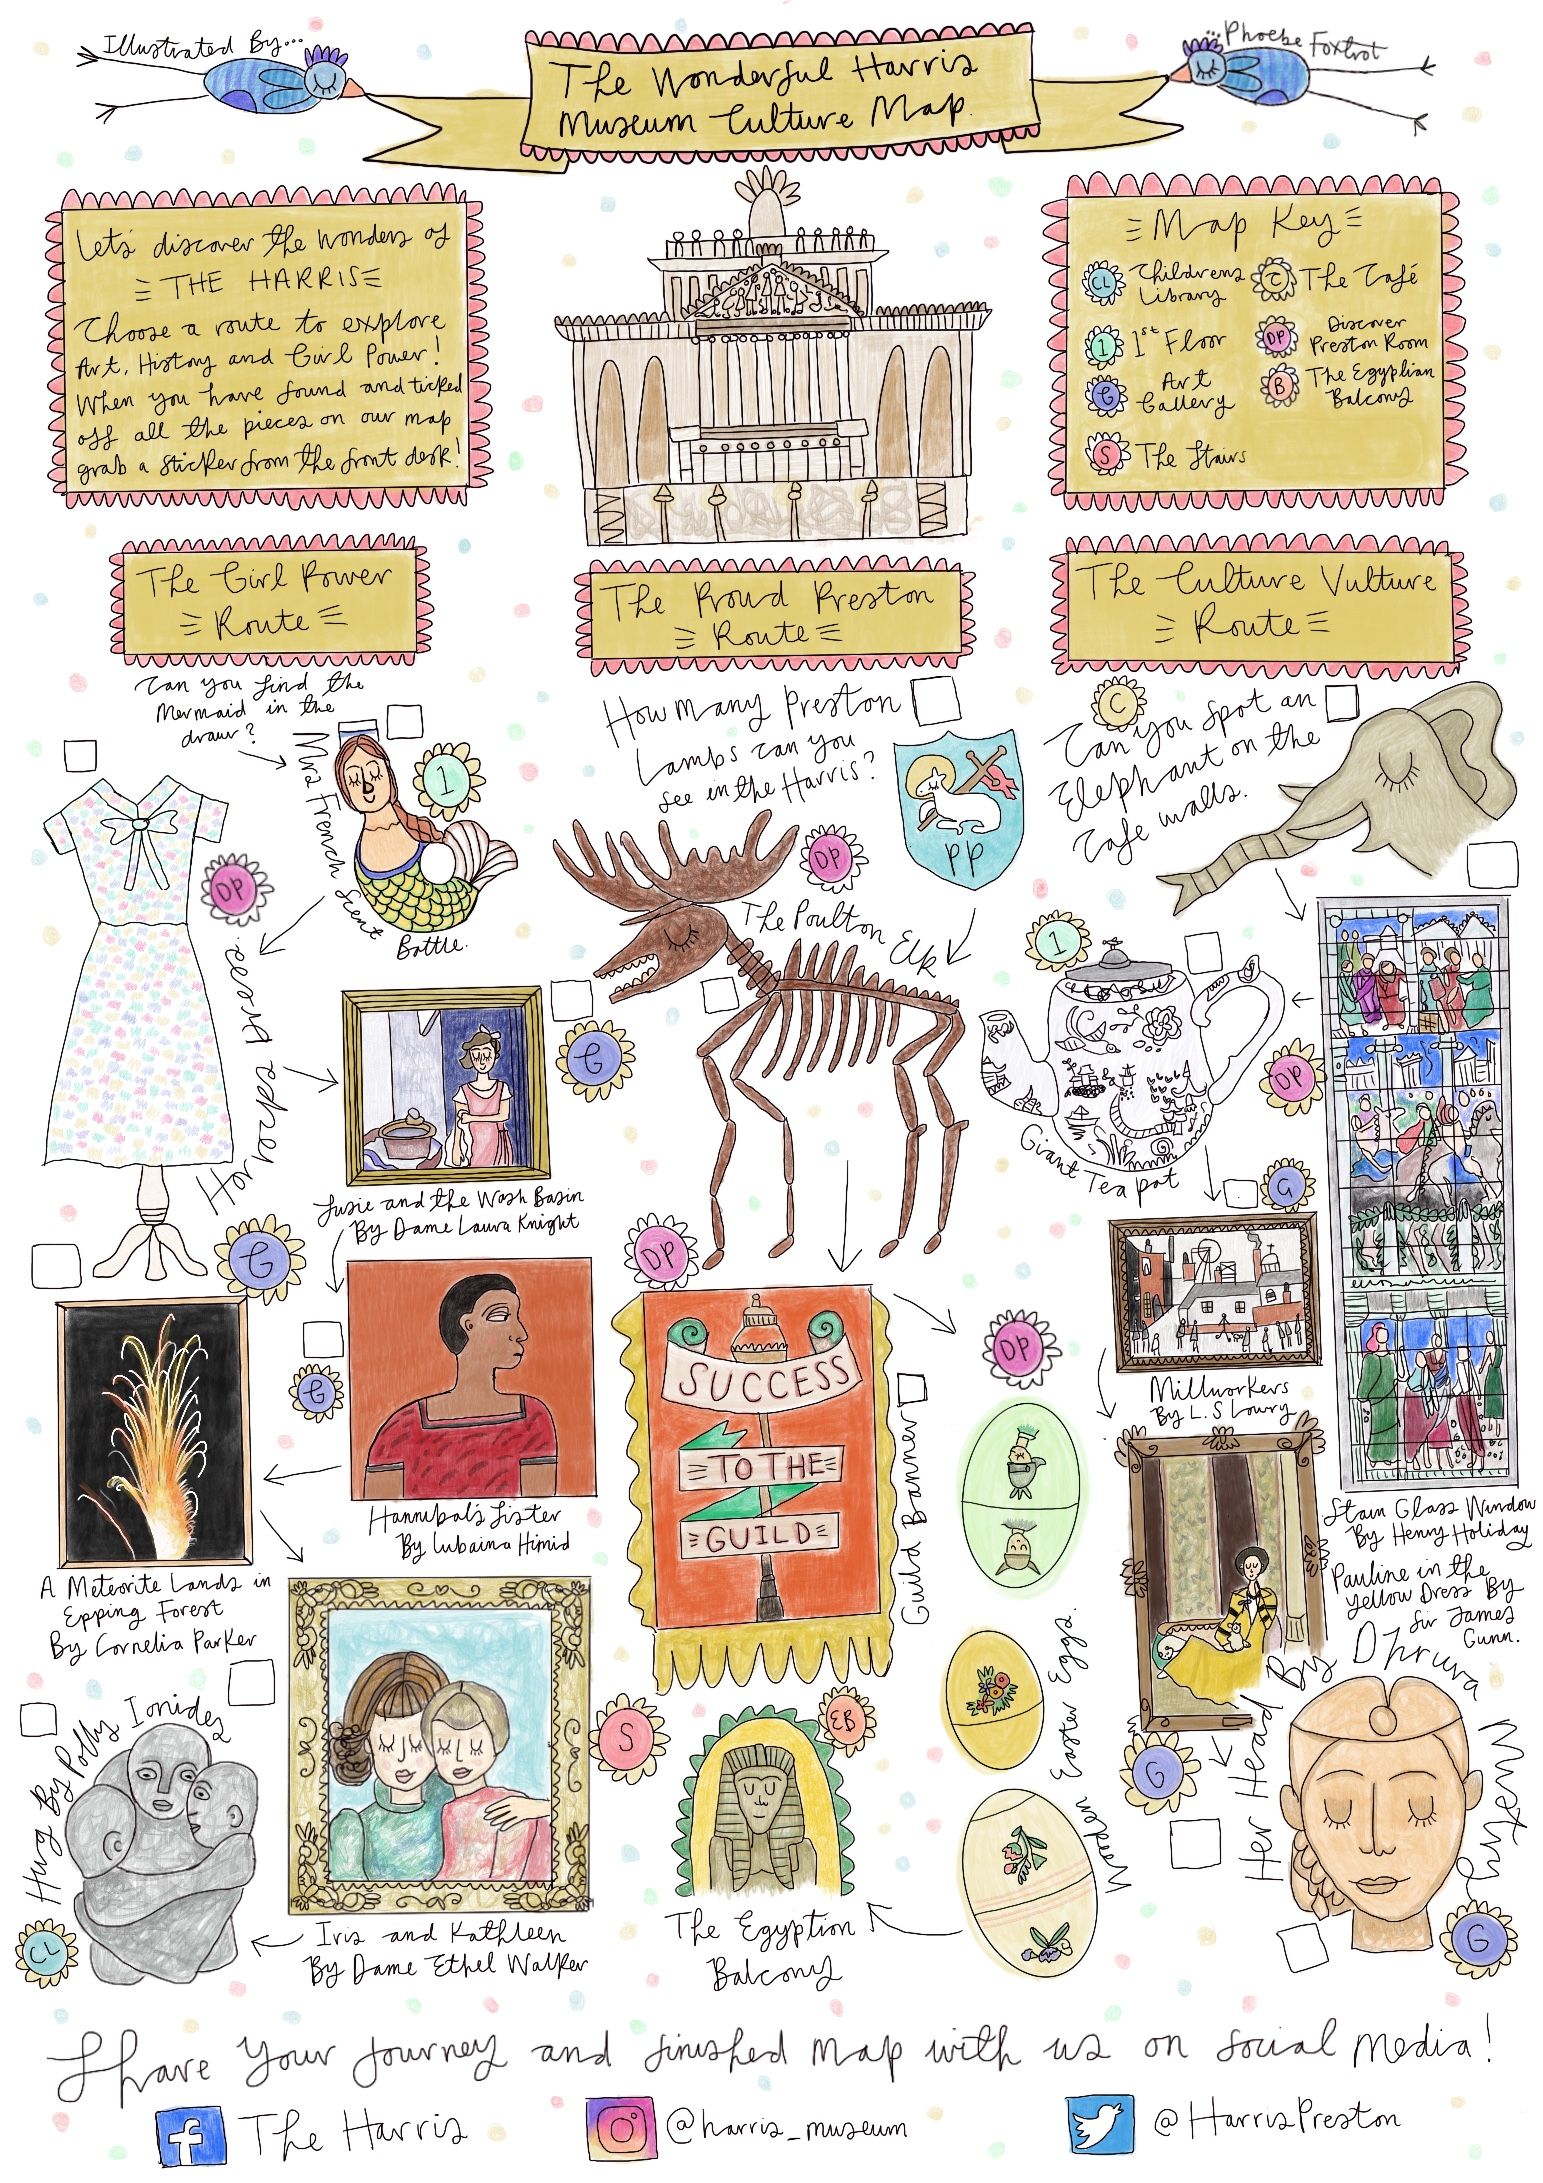 Illustrated By...
...Phoebe Foxtrot
The Wonderful Harris
Museum Culture Map.
Let's discover the wonders of
THE HARRIS
Choose a route to explore
Art, History and Girl Power!
When you have found and ticked
off all the pieces on our map
grab a sticker from the front desk!
Map Key
CL Childrens
Library
C The Café
1 1st Floor
DP Discover
Preston Room
G Art
Gallery
B The Egyptian
Balcony
S The Stairs
The Girl Power
Route
Can you find the
Mermaid in the
draw?
Mrs French Scent Bottle.
1
DP
Horrockses Dress.
G
Susie and the Wash Basin
By Dame Laura Knight
G
Hannibal's Sister
By Lubaina Himid
G
A Meteorite Lands in
Epping Forest
By Cornelia Parker
S
Iris and Kathleen
By Dame Ethel Walker
Hug By Polly Ionides
CL
The Proud Preston
Route
How many Preston
Lambs can you
see in the Harris?
PP
DP
The Poulton Elk
DP
SUCCESS
TO THE
GUILD
Guild Banner
DP
Wooden Easter Eggs.
EB
The Egyption
Balcony
The Culture Vulture
Route
C
Can you spot an
Elephant on the
Cafe walls.
DP
Stain Glass Window
By Henry Holiday
1
Giant Tea pot
G
Millworkers
By L.S Lowry
Pauline in the
Yellow Dress By
Sir James
Gunn.
G
Her Head By Dhruva Mistry
G
Share your journey and finished map with us on social media!
The Harris
@harris_museum
@HarrisPreston